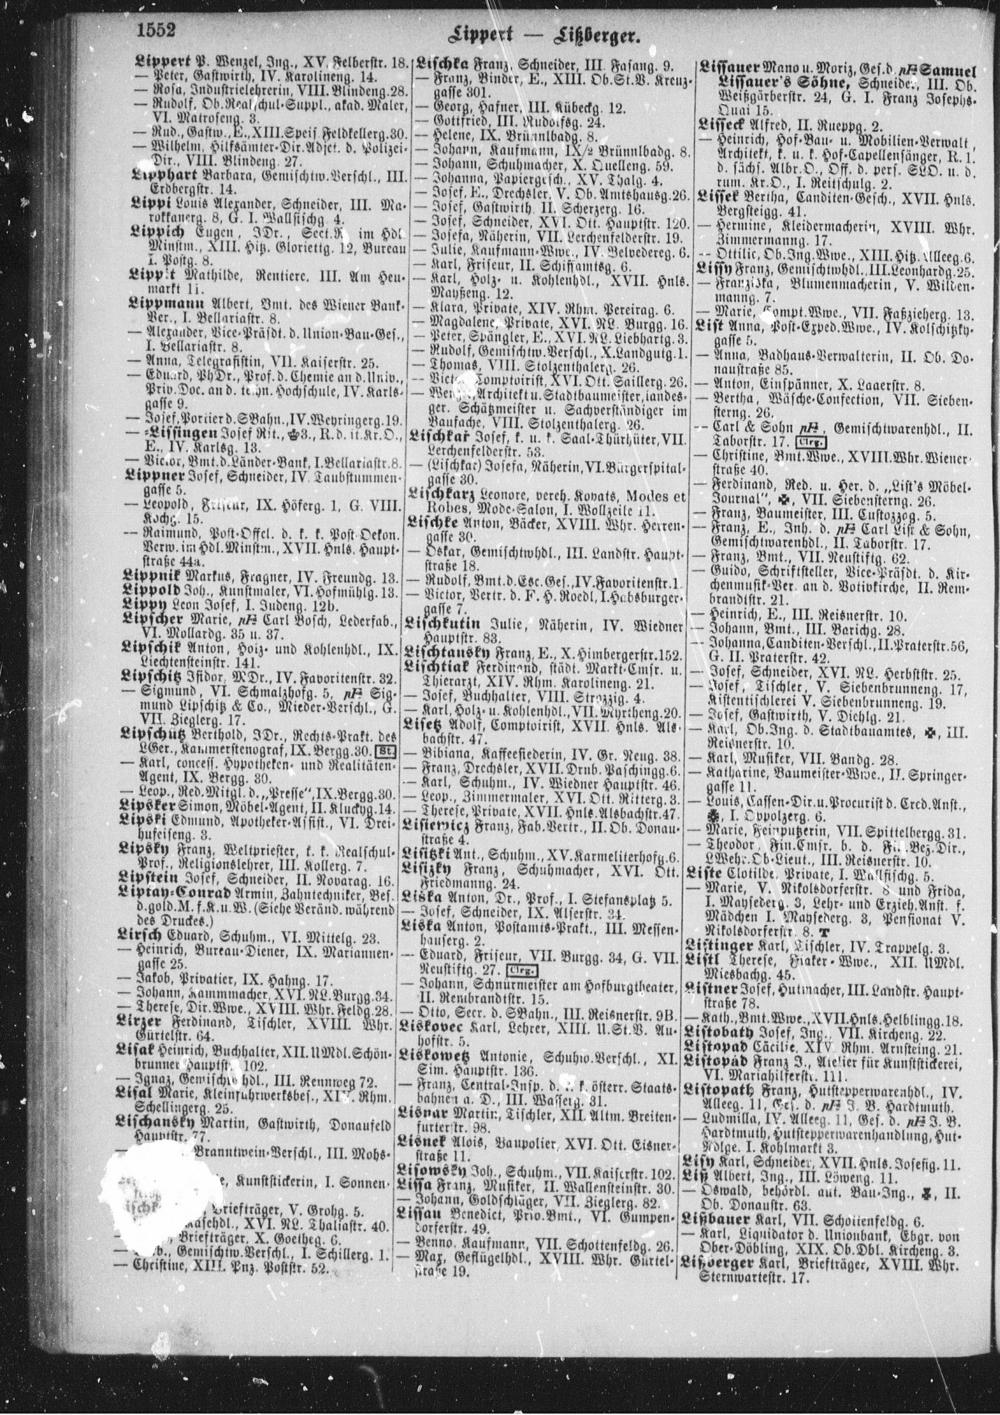 1552
Lippert — Lißberger.
Lippert P. Wenzel, Ing., XV. Felberstr. 18.
— Peter, Gastwirth, IV. Karolineng. 14.
— Rosa, Industrielehrerin, VIII. Blindeng. 28.
— Rudolf, Ob. Realschul-Suppl., akad. Maler,
VI. Matroseng. 3.
— Rud., Gastw., E., XIII. Speis. Feldkellerg. 30.
— Wilhelm, Hilfsämter-Dir. Adjct. d. Polizei-
Dir., VIII. Blindeng. 27.
Lipphart Barbara, Gemischtw. Verschl., III.
Erdbergstr. 14.
Lippi Louis Alexander, Schneider, III. Ma-
rokkanerg. 8, G. I. Wallfischg. 4.
Lippich Eugen, JDr., Sect. R. im Hdl
Minstm., XIII. Hitz. Gloriettg. 12, Bureau
I. Postg. 8.
Mathilde, Rentiere, III. Am Heu-
markt 11.
Lippmann Albert, Bmt. des Wiener Bank-
Ver., I. Bellariastr. 8.
— Alexander, Vice-Präsdt. d. Union-Bau-Ges.,
I. Bellariastr. 8.
— Anna, Telegrafistin, VII. Kaiserstr. 25.
— Eduard, PhDr., Prof. d. Chemie an d. Univ.,
Priv. Doc. an d. techn. Hochschule, IV. Karls-
gasse 9.
— Josef, Portier d. SBahn, IV. Weyringerg. 19.
— -Lissingen Josef Rit., ♔3., R. d. it. Kr. O.,
E., IV. Karlsg. 13.
— Victor, Bmt. d. Länder-Bank, I. Bellariastr. 8.
Lippner Josef, Schneider, IV. Taubstummen-
gasse 5.
— Leopold, Friseur, IX. Höferg. 1, G. VIII.
Kochg. 15.
— Raimund, Post-Offel. d. k. k. Post-Oekon.
Verw. im Hdl. Minstm., XVII. Hnls. Haupt-
straße 44a.
Lippnik Markus, Fragner, IV. Freundg. 13.
Lippold Joh., Kunstmaler, VI. Hofmühlg. 13.
Lippy Leon Josef, I. Judeng. 12b.
Lipscher Marie, pp Carl Bosch, Lederfab.,
VI. Mollardg. 35 u. 37.
Lipschik Anton, Holz- und Kohlenhdl., IX.
Liechtensteinstr. 141.
Lipschitz Isidor, MDr., IV. Favoritenstr. 32.
— Sigmund, VI. Schmalzhofg. 5, pp Sig-
mund Lipschitz & Co., Mieder-Verschl., G.
VII. Zieglerg. 17.
Lipschütz Berthold, JDr., Rechts-Prakt. des
LGer., Kammerstenograf, IX. Bergg. 30. St.
— Karl, concess. Hypotheken- und Realitäten-
Agent, IX. Bergg. 30.
— Leop., Red. Mitgl. d. „Presse", IX. Bergg. 30.
Lipsker Simon, Möbel-Agent, II. Kluckyg. 14.
Lipski Edmund, Apotheker-Assist., VI. Drei-
hufeiseng. 3.
Lipsky Franz, Weltpriester, k. k. Realschul-
Prof., Religionslehrer, III. Kollerg. 7.
Lipstein Josef, Schneider, II. Novarag. 16.
Liptay-Conrad Armin, Zahntechniker, Bes.
d. gold. M. f. K. u. W. (Siehe Veränd. während
des Druckes.)
Lirsch Eduard, Schuhm., VI. Mittelg. 23.
— Heinrich, Bureau-Diener, IX. Mariannen-
gasse 25.
— Jakob, Privatier, IX. Hahng. 17.
— Johann, Kammmacher, XVI. NL. Burgg. 34.
— Therese, Dir. Wwe., XVIII. Whr. Feldg. 28.
Lirzer Ferdinand, Tischler, XVIII. Whr.
Gürtelstr. 64.
Lisak Heinrich, Buchhalter, XII. UMdl. Schön-
brunner Hauptstr. 102.
— Ignaz, Gemischtwhdl., III. Rennweg 72.
Lisal Marie, Kleinfuhrwerksbes., XIV. Rhm.
Schellingerg. 25.
Lischansky Martin, Gastwirth, Donaufeld
Hauptstr. 77.
Branntwein-Verschl., III. Mohs-
Kunststickerin, I. Sonnen-
Briefträger, V. Grohg. 5.
XVI. NL. Thaliastr. 40.
Briefträger, X. Goetheg. 6.
Gemischtw. Verschl., I. Schillerg. 1.
— Christine, XIII. Pnz. Poststr. 52.
Lischka Franz, Schneider, III. Fasang. 9.
— Franz, Binder, E., XIII. Ob. St. V. Kreuz-
gasse 301.
— Georg, Hafner, III. Kübeckg. 12.
— Gottfried, III. Rudolfsg. 24.
— Helene, IX. Brünnlbadg. 8.
— Johann, Kaufmann, IX/2 Brünnlbadg. 8.
— Johann, Schuhmacher, X. Quelleng. 59.
— Johanna, Papiergesch., XV. Thalg. 4.
— Josef, E., Drechsler, V. Ob. Amtshausg. 26.
— Josef, Gastwirth, II. Scherzerg. 16.
— Josef, Schneider, XVI. Ott. Hauptstr. 120.
— Josefa, Näherin, VII. Lerchenfelderstr. 19.
— Julie, Kaufmann-Wwe., IV. Belvedereg. 6.
— Karl, Friseur, II. Schiffamtsg. 6.
— Karl, Holz- u. Kohlenhdl., XVII. Hnls.
Mayßeng. 12.
— Klara, Private, XIV. Rhm. Pereirag. 6.
— Magdalene, Private, XVI. NL. Burgg. 16.
— Peter, Spängler, E., XVI. NL. Liebhartg. 3.
— Rudolf, Gemischtw. Verschl., X. Landgutg. 1.
— Thomas, VIII. Stolzenthalerg. 26.
Comptoirist, XVI. Ott. Seillerg. 26.
Architekt u. Stadtbaumeister, landes-
ger. Schätzmeister u. Sachverständiger im
Baufache, VIII. Stolzenthalerg. 26.
Lischkar Josef, k. u. k. Saal-Thürhüter, VII.
Lerchenfelderstr. 53.
— (Lischkar) Josefa, Näherin, VI. Bürgerspital-
gasse 30.
Lischkarz Leonore, vereh. Kovats, Modes et
Robes, Mode-Salon, I. Wollzeile 11.
Lischke Anton, Bäcker, XVIII. Whr. Herren-
gasse 30.
— Oskar, Gemischtwhdl., III. Landstr. Haupt-
straße 18.
— Rudolf, Bmt. d. Esc. Ges., IV. Favoritenstr. 1
— Victor, Vertr. d. F. H. Roedl, I. Habsburger-
gasse 7.
Lischkutin Julie, Näherin, IV. Wiedner
Hauptstr. 83.
Lischtansky Franz, E., X. Himbergerstr. 152.
Lischtiak Ferdinand, städt. Markt-Cmsr. u.
Thierarzt, XIV. Rhm. Karolineng. 21.
— Josef, Buchhalter, VIII. Strozzig. 4.
— Karl, Holz- u. Kohlenhdl., VII. Myrtheng. 20.
Lisetz Adolf, Comptoirist, XVII. Hnls. Als-
bachstr. 47.
— Bibiana, Kaffeesiederin, IV. Gr. Neug. 38.
— Franz, Drechsler, XVII. Drnb. Paschingg. 6.
— Karl, Schuhm., IV. Wiedner Hauptstr. 46.
— Leop., Zimmermaler, XVI. Ott. Ritterg. 3.
— Therese, Private, XVII. Hnls. Alsbachstr. 47.
Lisiewicz Franz, Fab. Vertr., II. Ob. Donau-
straße 4.
Lisitzki Ant., Schuhm., XV. Karmeliterhofg. 6.
Lisizky Franz, Schuhmacher, XVI. Ott.
Friedmanng. 24.
Liska Anton, Dr., Prof., I. Stefansplatz 5.
— Josef, Schneider, IX. Alserstr. 34.
Liska Anton, Postamts-Prakt., III. Messen-
hauserg. 2.
— Eduard, Friseur, VII. Burgg. 34, G. VII.
Neustiftg. 27. Clrg.
— Johann, Schnürmeister am Hofburgtheater,
II. Rembrandtstr. 15.
— Otto, Secr. d. SBahn., III. Reisnerstr. 9B.
Liskovec Karl, Lehrer, XIII. U. St. V. Au-
hofstr. 5.
Liskowetz Antonie, Schuhw. Verschl., XI.
Sim. Hauptstr. 136.
— Franz, Central-Insp. d. k. k. österr. Staats-
bahnen a. D., III. Wasserg. 31.
Lisnar Martin, Tischler, XII. Altm. Breiten-
furterstr. 98.
Lisnek Alois, Baupolier, XVI. Ott. Eisner-
straße 11.
Lisowsky Joh., Schuhm., VII. Kaiserstr. 102.
Lissa Franz, Musiker, II. Wallensteinstr. 30.
— Johann, Goldschläger, VII. Zieglerg. 82.
Lissau Benedict, Priv. Bmt., VI. Gumpen-
dorferstr. 49.
— Benno, Kaufmann, VII. Schottenfeldg. 26.
— Max, Geflügelhdl., XVIII. Whr. Gürtel-
straße 19.
Lissauer Mano u. Moriz, Ges. d. pp Samuel
Lissauer's Söhne, Schneider, III. Ob.
Weißgärberstr. 24, G. I. Franz Josephs-
Quai 15.
Lisseck Alfred, II. Rueppg. 2.
— Heinrich, Hof-Bau- u. Mobilien-Verwalt,
Architekt, k. u. k. Hof-Capellensänger, R. 1.
d. sächs. Albr. O., Off. d. pers. SLO. u. d.
rum. Kr. O., I. Reitschulg. 2.
Lissek Bertha, Canditen-Gesch., XVII. Hnls.
Bergsteigg. 41.
— Hermine, Kleidermacherin, XVIII. Whr.
Zimmermanng. 17.
— Ottilie, Ob. Ing. Wwe., XIII. Hitz. Alleeg. 6.
Lissy Franz, Gemischtwhdl., III. Leonhardg. 25.
— Franziska, Blumenmacherin, V. Wilden-
manng. 7.
— Marie, Compt. Wwe., VII. Faßzieherg. 13.
List Anna, Post-Exped. Wwe., IV. Kolschitzky-
gasse 5.
— Anna, Badhaus-Verwalterin, II. Ob. Do-
naustraße 85.
— Anton, Einspänner, X. Laaerstr. 8.
— Bertha, Wäsche-Confection, VII. Sieben-
sterng. 26.
— Carl & Sohn pp, Gemischtwarenhdl., II.
Taborstr. 17. Clrg.
— Christine, Bmt. Wwe., XVIII. Whr. Wiener-
straße 40.
— Ferdinand, Red. u. Her. d. „List's Möbel-
Journal", ✠, VII. Siebensterng. 26.
— Franz, Baumeister, III. Custozzog. 5.
— Franz, E., Inh. d. pp Carl List & Sohn,
Gemischtwarenhdl., II. Taborstr. 17.
— Franz, Bmt., VII. Neustiftg. 62.
— Guido, Schriftsteller, Vice-Präsdt. d. Kir-
chenmusik-Ver. an d. Votivkirche, II. Rem-
brandtstr. 21.
— Heinrich, E., III. Reisnerstr. 10.
— Johann, Bmt., III. Barichg. 28.
— Johanna, Canditen-Verschl., II. Praterstr. 56,
G. II. Praterstr. 42.
— Josef, Schneider, XVI. NL. Herbststr. 25.
— Josef, Tischler, V. Siebenbrunneng. 17,
Kistentischlerei V. Siebenbrunneng. 19.
— Josef, Gastwirth, V. Diehlg. 21.
— Karl, Ob. Ing. d. Stadtbauamtes, ✠, III.
Reisnerstr. 10.
— Karl, Musiker, VII. Bandg. 28.
— Katharine, Baumeister-Wwe., II. Springer-
gasse 11.
— Louis, Cassen-Dir. u. Procurist d. Cred. Anst.,
✠, I. Oppolzerg. 6.
— Marie, Feinputzerin, VII. Spittelbergg. 31.
— Theodor, Fin. Cmsr. b. d. Fin. Bez. Dir.,
LWehr-Ob. Lieut., III. Reisnerstr. 10.
Liste Clotilde, Private, I. Wallfischg. 5.
— Marie, V. Nikolsdorferstr. 8 und Frida,
I. Maysederg. 3, Lehr- und Erzieh. Anst. f.
Mädchen I. Maysederg. 3, Pensionat V.
Nikolsdorferstr. 8. T
Listinger Karl, Tischler, IV. Trappelg. 3.
Listl Therese, Fiaker-Wwe., XII. UMdl.
Miesbachg. 45.
Listner Josef, Hutmacher, III. Landstr. Haupt-
straße 78.
— Kath., Bmt. Wwe., XVII. Hnls. Helblingg. 18.
Listobath Josef, Ing., VII. Kircheng. 22.
Listopad Cäcilie, XIV. Rhm. Arnsteing. 21.
Listopád Franz J., Atelier für Kunststickerei,
VI. Mariahilferstr. 111.
Listopath Franz, Hutstepperwarenhdl., IV.
Alleeg. 11, Ges. d. pp J. B. Hardtmuth.
— Ludmilla, IV. Alleeg. 11, Ges. d. pp J. B.
Hardtmuth, Hutstepperwarenhandlung, Hut-
Ndlge. I. Kohlmarkt 3.
Lisy Karl, Schneider, XVII. Hnls. Josefig. 11.
Liß Albert, Ing., III. Löweng. 11.
— Oswald, behördl. aut. Bau-Ing., II.
Ob. Donaustr. 63.
Lißbauer Karl, VII. Schottenfeldg. 6.
— Karl, Liquidator d. Unionbank, Ehgr. von
Ober-Döbling, XIX. Ob. Dbl. Kircheng. 3.
Lißberger Karl, Briefträger, XVIII. Whr.
Sternwartestr. 17.